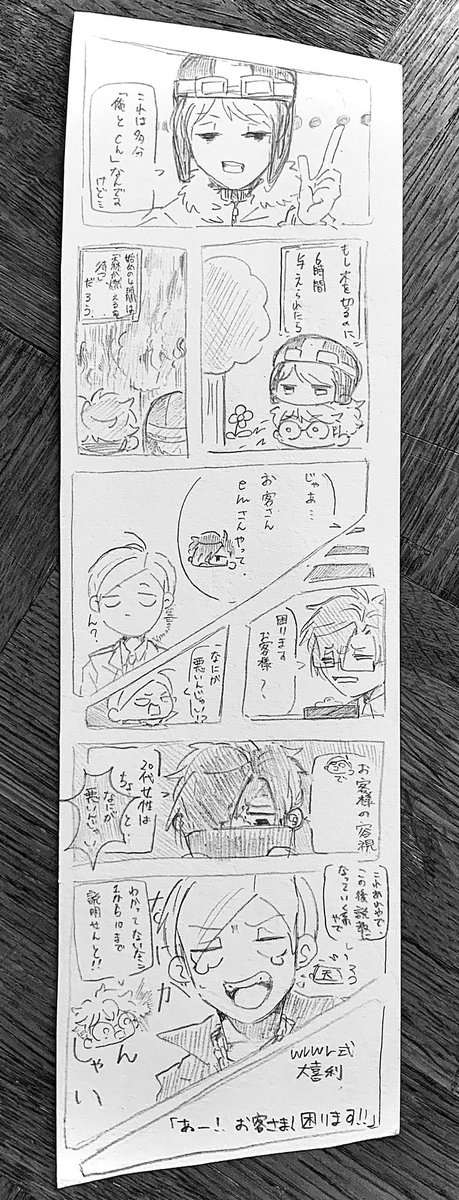 これは多分
「俺とけん」なんですの
けど…
もし木を切るのに
6時間
与えられたら
始めの4時間は
森が燃えるを
待つ
だろう
じゃあ…
お客さん
さんやって
ん?
困ります
お客様?
なにが
悪いんじゃい!?
お客様の容視
で
20代女性は
ちょっと…
なにが
悪いんじゃい
これあれやで
この後説教に
なっていく案
やで
わかってないなこ
1から10まで
説明せんと!!
なにが
じゃい
wlwl式
大喜利
「あー!お客さまし困ります!!」